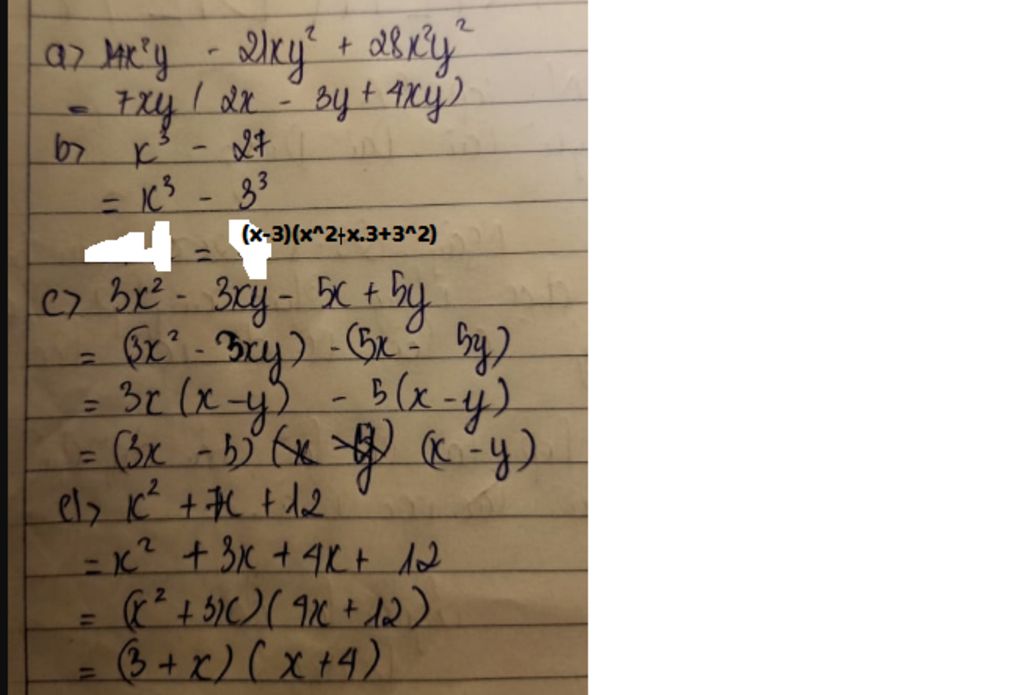 a> 14x²y - 21xy² + 28x²y²
= 7xy ( 2x - 3y + 4xy)
b> x³ - 27
= x³ - 3³
= (x-3)(x^2+x.3+3^2)
c> 3x² - 3xy - 5x + 5y
= (3x² - 3xy) - (5x - 5y)
= 3x (x - y) - 5 (x - y)
= (3x - 5) (x - y)
d> x² + 7x + 12
= x² + 3x + 4x + 12
= (x² + 3x) ( 4x + 12)
= (3 + x) ( x + 4)